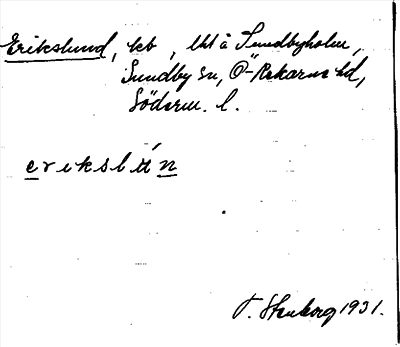 Erikslund, kb, lht å Sundbyholm,
Sundby sn, Ö-Rekarne hd,
Söderm. l.
erikslún
T. Stenborg 1931.